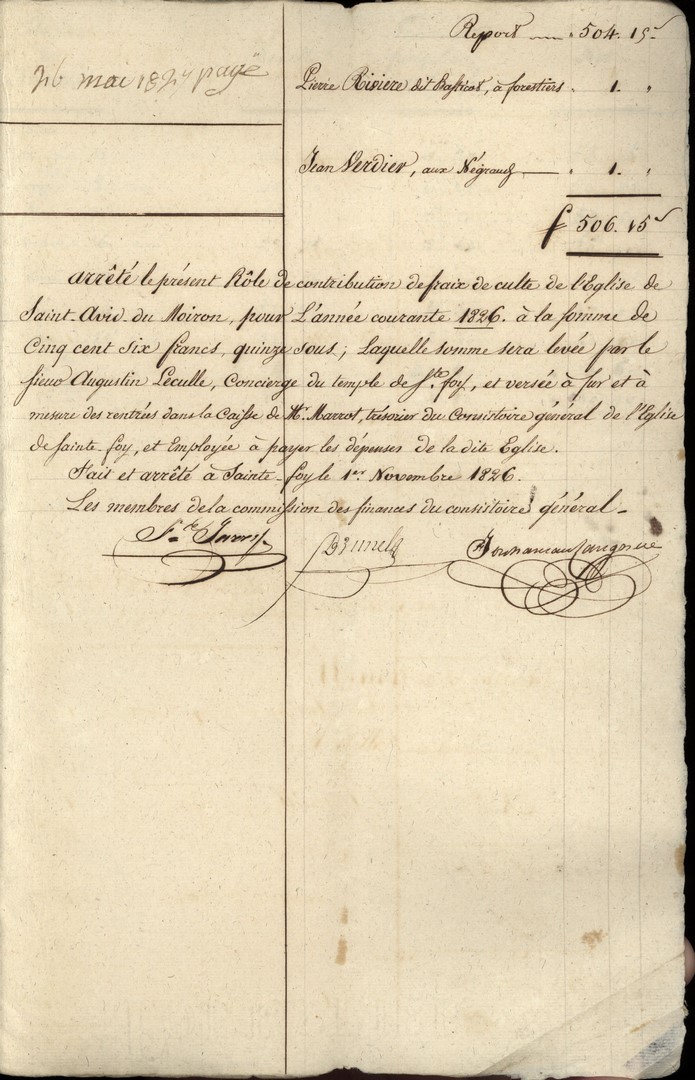 Report 504. 15s
26 mai 1827 payé
Pierre Riviere dit Basticot, à forestiers 1. "
Jean Verdier, aux Négrauds 1. "
f 506. 15s
arrêté le présent Rôle de contribution de fraix de culte de l'Eglise de
Saint-Avid-du Moiron, pour L'année courante 1826. à la somme de
Cinq cent six francs, quinze sous; Laquelle somme sera levée par le
sieur Augustin Leculle, Concierge du temple de Ste. foy, et versée à fur et à
mesure des rentrées dans la Caisse de Mr. Marrot, trésorier du Consistoire général de l'Eglise
de sainte foy, et Employée à payer les dépenses de la dite Eglise.
Fait et arrêté à Sainte-foy le 1er. Novembre 1826.
Les membres de la commission des finances du consistoire général.
Brunel